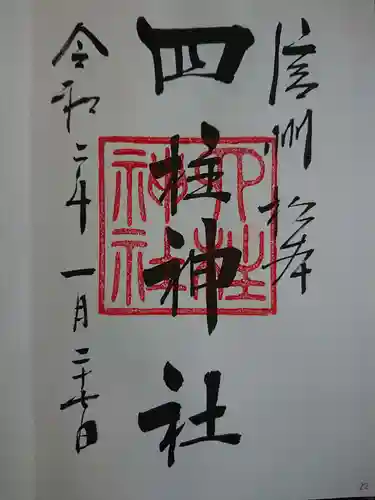 信州 松本
四柱神社
四柱神社
令和二年 一月 二十七日
22